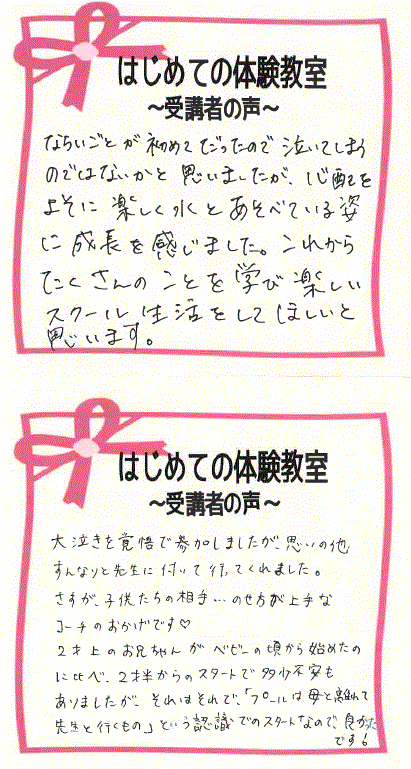 はじめての体験教室
～受講者の声～
ならいごとが初めてだったので泣いてしまう
のではないかと思いましたが、心配を
よそに楽しく水とあそべている姿
に成長を感じました。これから
たくさんのことを学び楽しい
スクール生活をしてほしいと
思います。
はじめての体験教室
～受講者の声～
大泣きを覚悟で参加しましたが、思いの他
すんなりと先生に付いて行ってくれました。
さすが、子供たちの相手…のせ方が上手な
コーチのおかげです♡
2才上のお兄ちゃんがベビーの頃から始めたの
に比べ、2才半からのスタートで多少不安も
ありましたが、それはそれで、「プールは母と離れて
先生と行くもの」という認識でのスタートなので、良かった
です!